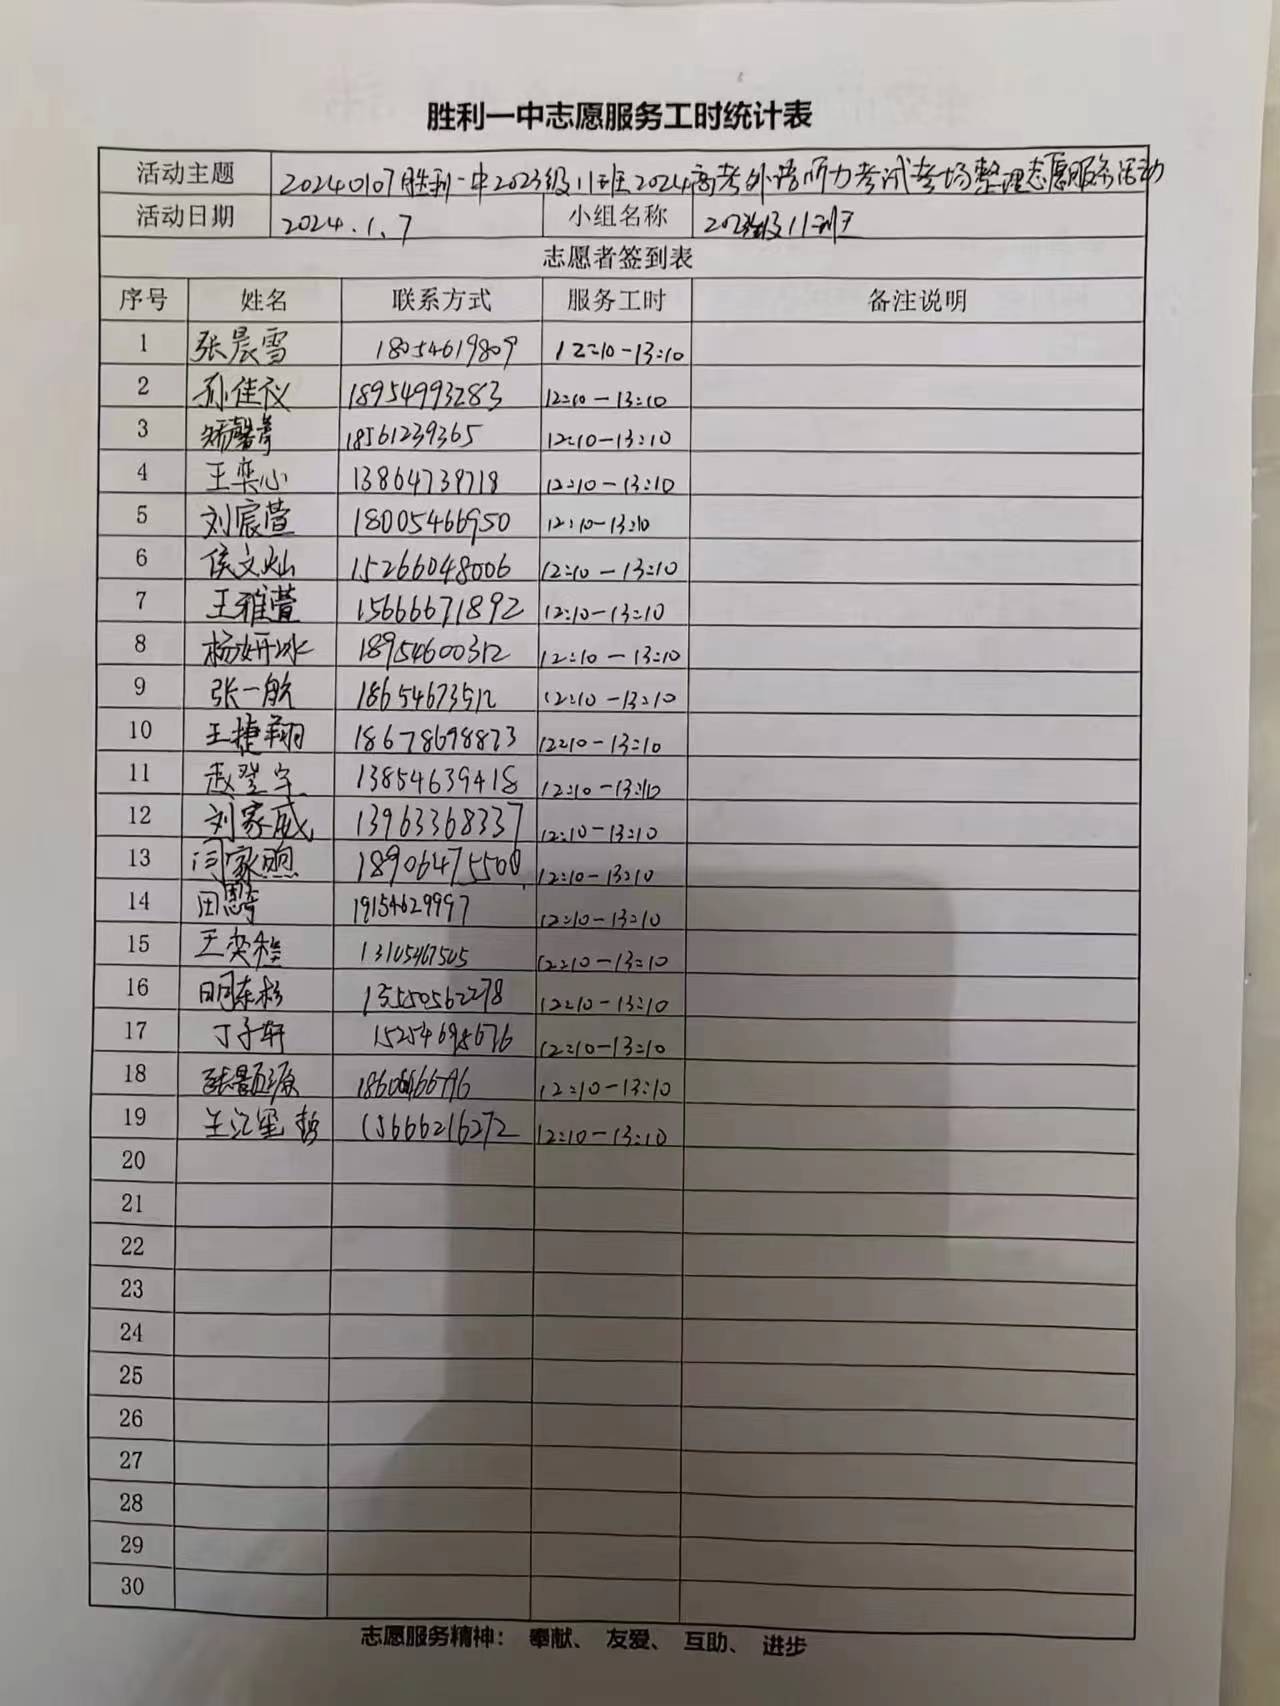 胜利一中志愿服务工时统计表
活动主题 20240107胜利一中2023级11班2024高考外语听力考试考场整理志愿服务活动
活动日期 2024.1.7 小组名称 2023级11班
志愿者签到表
序号 姓名 联系方式 服务工时 备注说明
1 张晨雪 18054619809 12:10-13:10
2 孙佳仪 18954993283 12:10-13:10
3 18561239365 12:10-13:10
4 王奕心 13864738718 12:10-13:10
5 刘宸萱 18005466950 12:10-13:10
6 侯文灿 15266048006 12:10-13:10
7 王雅萱 15666671892 12:10-13:10
8 杨妍冰 18954600312 12:10-13:10
9 张一航 18654673512 12:10-13:10
10 王捷翔 18678698873 12:10-13:10
11 赵堃宇 13854639418 12:10-13:10
12 刘家威 13963368337 12:10-13:10
13 闫家煦 18906475500 12:10-13:10
14 田思奇 19154629997 12:10-13:10
15 王奕程 13105467505 12:10-13:10
16 12:10-13:10
17 丁子轩 12:10-13:10
18 张题源 12:10-13:10
19 15666216272 12:10-13:10
20
21
22
23
24
25
26
27
28
29
30
志愿服务精神： 奉献、 友爱、 互助、 进步